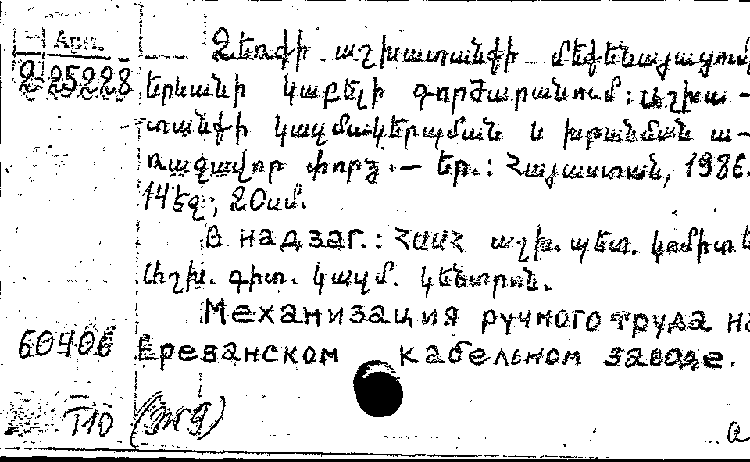 Арм.
2 25228
Ձեռքի աշխատանքի մեքենայացումը
Երևանի կաբելի գործարանում: Աշխա-
տանքի կազմակերպման և խթանման ա-
ռաջավոր փորձ.— Եր.: Հայաստան, 1986.
14էջ; 20սմ.
В надзаг.: ՀՍՍՀ աշխ. պետ. կոմիտե
Աշխ. գիտ. կազմ. կենտրոն.
Механизация ручного труда на
60406 Ереванском кабельном заводе.
Т10